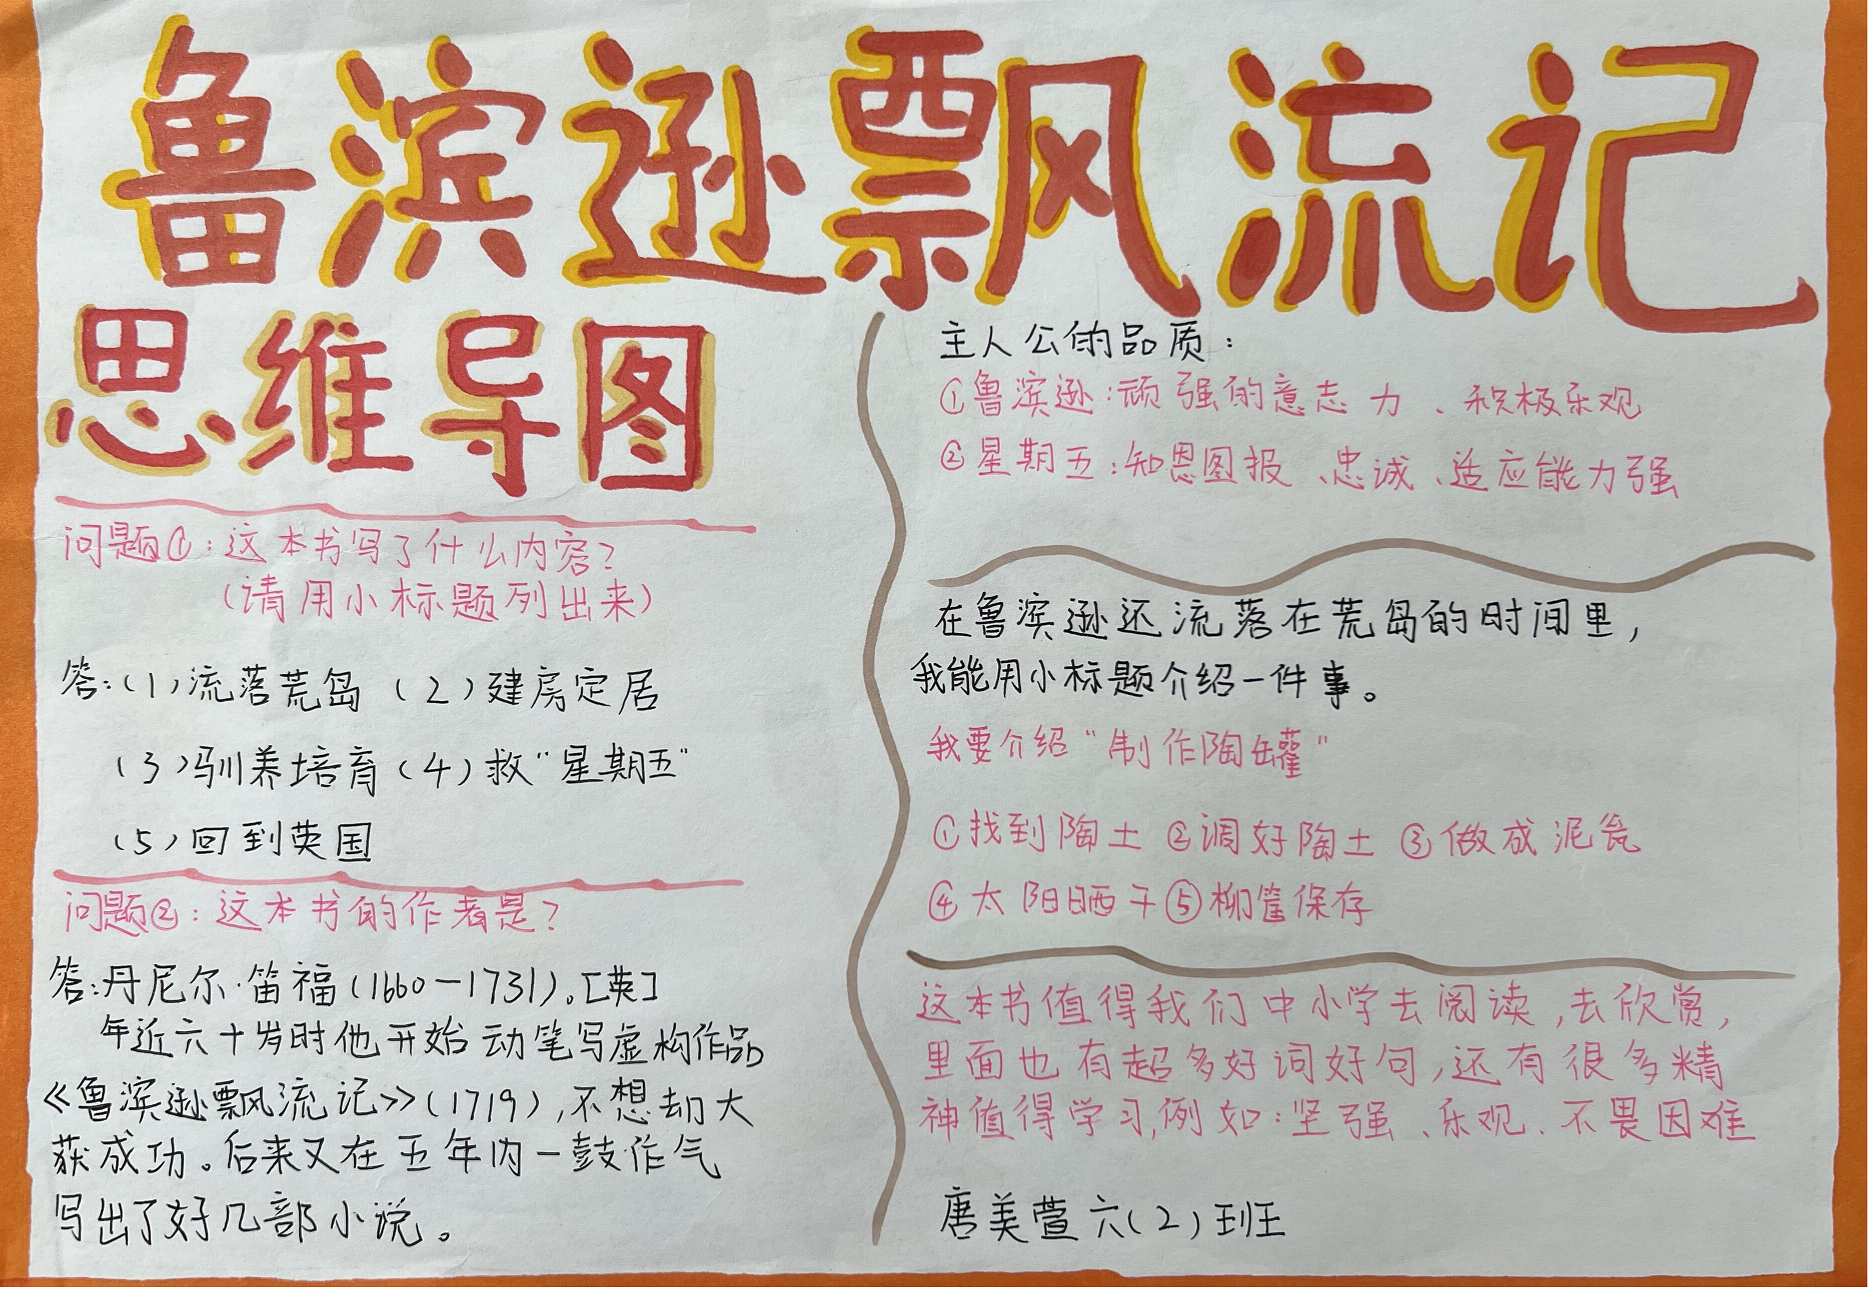 鲁滨逊飘流记
思维导图
问题①:这本书写了什么内容?
(请用小标题列出来)
答:(1)流落荒岛 (2)建房定居
(3)驯养培育(4)救“星期五”
(5)回到英国
问题②:这本书的作者是?
答:丹尼尔·笛福(1660-1731)。[英]
年近六十岁时他开始动笔写虚构作品
《鲁滨逊飘流记》(1719),不想却大
获成功。后来又在五年内一鼓作气
写出了好几部小说。
主人公的品质:
①鲁滨逊:顽强的意志力、积极乐观
②星期五:知恩图报、忠诚、适应能力强
在鲁滨逊还流落在荒岛的时间里,
我能用小标题介绍一件事。
我要介绍“制作陶罐”
①找到陶土 ②调好陶土 ③做成泥瓮
④太阳晒干⑤柳筐保存
这本书值得我们中小学去阅读,去欣赏,
里面也有超多好词好句,还有很多精
神值得学习,例如:坚强、乐观、不畏困难
唐美萱六(2)班